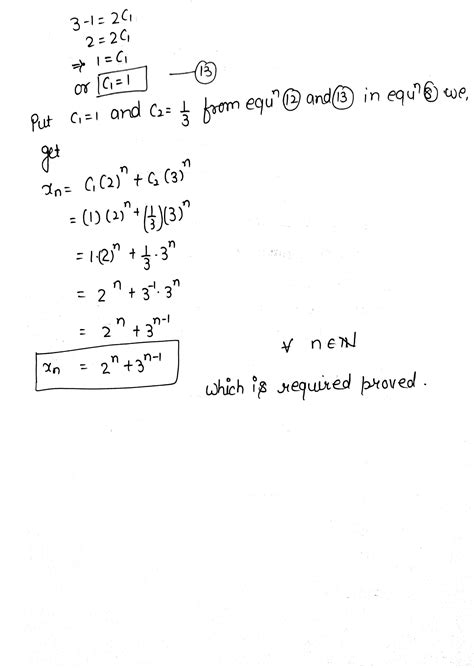 3-1 = 2C₁
2 = 2C₁
⇒ 1 = C₁
or C₁ = 1 —⑬
Put C₁=1 and C₂= 1/3 from equⁿ ⑫ and ⑬ in equⁿ ⑧ we,
get
xₙ = C₁(2)ⁿ + C₂(3)ⁿ
= (1)(2)ⁿ + (1/3)(3)ⁿ
= 1·(2)ⁿ + 1/3 · 3ⁿ
= 2ⁿ + 3⁻¹ · 3ⁿ
= 2ⁿ + 3ⁿ⁻¹
xₙ = 2ⁿ + 3ⁿ⁻¹ ∀ n∈ℕ
which is required proved.